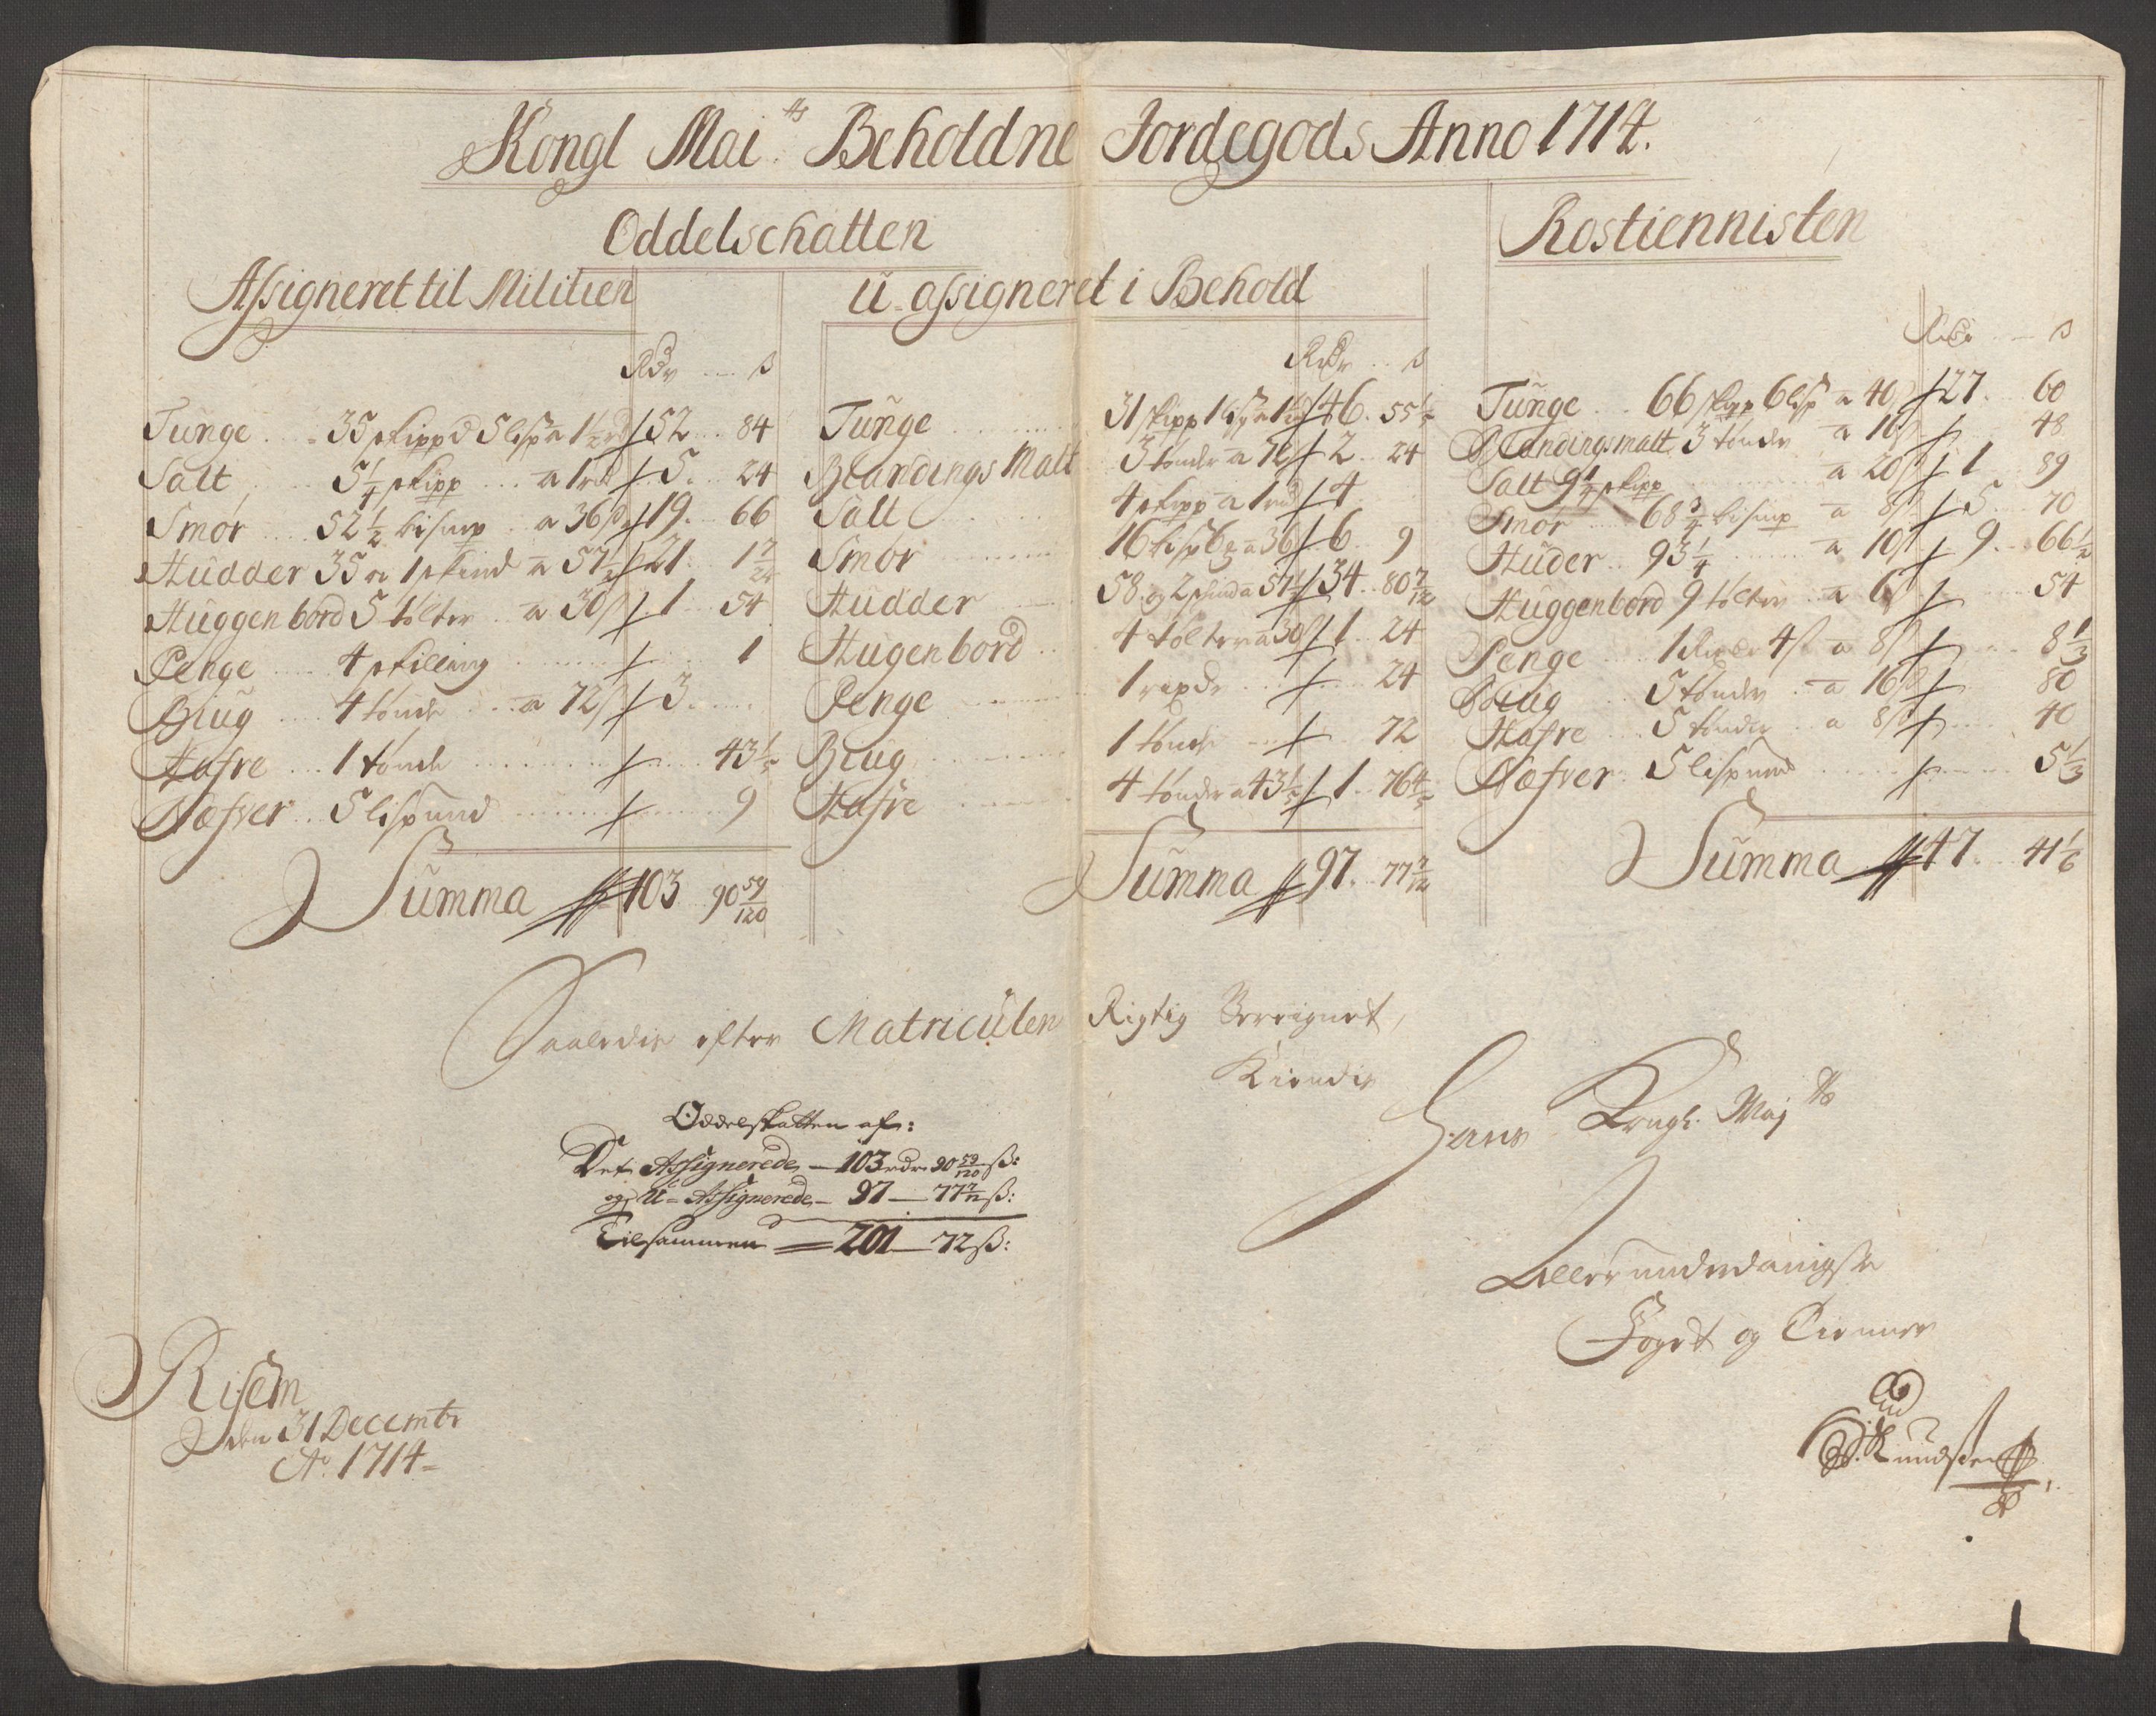 Kongl Mai.ts Beholdne Jordegods Anno 1714.
Oddelschatten
Assigneret til Militien
Rdr ß
Tunge 35 skippd 5 lisp a 1½ rd 52 84
Salt 5¼ skipp a 1 rd 5 24
Smør 52½ bismp a 36 ß 19 66
Hudder 35 oc 1 skind a 57½ 21 1 7/24
Huggenbord 5 tolter a 30 ß 1 54
Penge 4 skilling 1
Biug 4 tønde a 72 ß 3
Hafre 1 tønde 43⅕
Næfver 5 lispund 9
Summa 103 90 59/120
U-assigneret i Behold
Rdr ß
Tunge 31 skipp 1 lisp a 1½ rd 46 55⅕
Blandings Malt 3 tønder a 72 2 24
Salt 4 skipp a 1 rd 4
Smør 16 bisp 6 a 36 6 9
Hudder 58 og 2 skind a 57½ 34 80 7/12
Hugenbord 4 tolter a 30 ß 1 24
Penge 1 rixdr 24
Biug 1 tønde 72
Hafre 4 tønder a 43⅕ 1 76⅘
Summa 97 77 7/12
Rostiennisten
Rdr ß
Tunge 66 skipp 6 lisp a 40 27 60
Blandingsmalt 3 tønder a 16 ß 48
Salt 9¼ skipp a 20 ß 1 89
Smør 68¾ bismp a 8 ß 5 70
Huder 93¼ a 10 ß 9 66½
Huggenbord 9 tolter a 6 ß 54
Penge 1 Rixdr 4 ß a 8 ß 8⅓
Biug 5 tønder a 16 ß 80
Hafre 5 tønder a 8 ß 40
Næfver 5 lispund 5⅓
Summa 47 41⅙
Saaledis efter Matriculen Rigtig Bereignet,
Kiendis
Hans Kongl. Majts
Allerunderdanigste
Foget og Tienner
Knudsen
Oddelskatten af:
Det Assignerede 103 rdr 90 59/120 ß:
og U-Assignerede 97 77 7/12 ß:
Tilsammen 201 72 ß:
Risem
den 31 Decembr
Ao. 1714